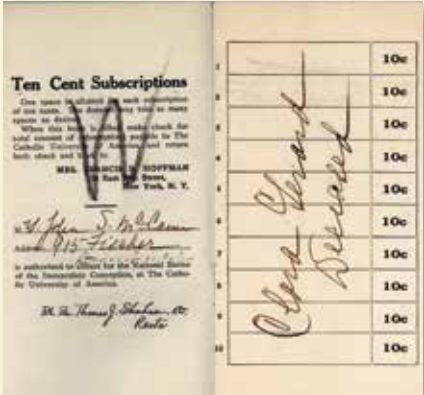 Ten Cent Subscriptions
One space is allotted for each subscription
of ten cents. The donor may take as many
spaces as desired.
When this book is filled make check for
total amount of subscriptions payable to The
Catholic University of America, and return
both check and book to
MRS. FRANCIS HOFFMAN
East Street,
New York, N. Y.
John S. McCann
Address 915 Fischer
is authorized to collect for the National Shrine
of the Immaculate Conception, at The Catho-
lic University of America.
Rt. Rev. Thomas J. Shahan, DD.
Rector
1 10c
2 10c
3 10c
4 10c
5 10c
6 10c
7 10c
8 10c
9 10c
10 10c
Clara Gerard
Deceased